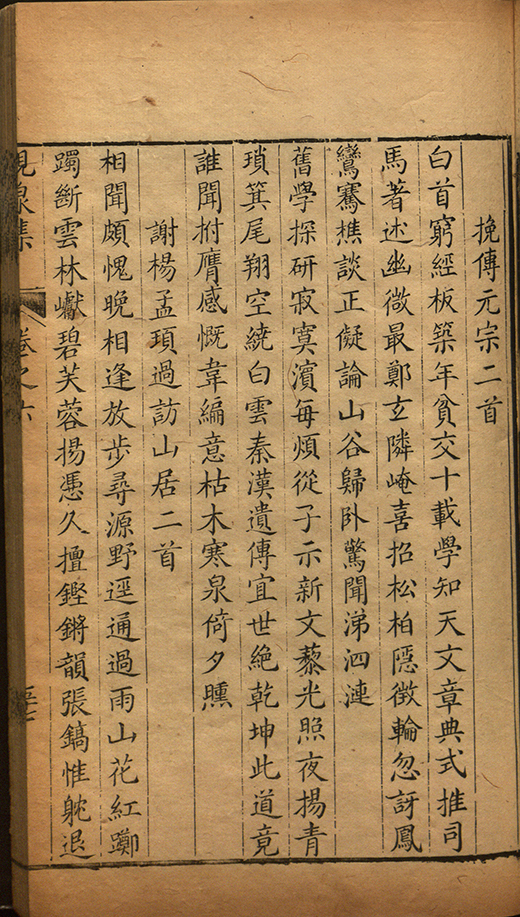 挽傳元宗二首
白首窮經板築年貧交十載學知天文章典式推司
馬著述幽微最鄭玄隣崦喜招松柏隱徵輪忽訝鳳
鸞騫樵談正儗論山谷歸卧驚聞涕泗漣
舊學探研寂寞濱每煩從子示新文藜光照夜揚青
瑣箕尾翔空繞白雲秦漢遺傳宜世絶乾坤此道竟
誰聞拊膺感慨韋編意枯木寒泉倚夕曛
謝楊孟頊過訪山居二首
相聞頗愧晚相逢放步尋源野逕通過雨山花紅躑
躅斷雲林巘碧芙蓉揚馮久擅鏗鏘韻張鎬惟躭退
泉集
卷之六